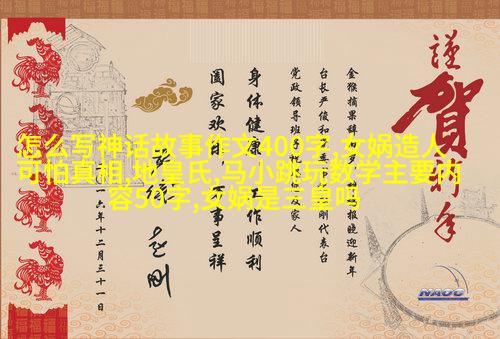 謹
賀新年
金猴摘果辞报晓迎新年
台长严俊和刚代表台
党政领导班子祝家人
身体健康 工作顺利
阖家欢事呈祥
赵刚
一六年十二月三十一日
怎么写神话故事作文400字,女娲造人
可怕真相,地皇氏,马小跳玩数学主要内
容50字,女娲是三皇吗
NAOC